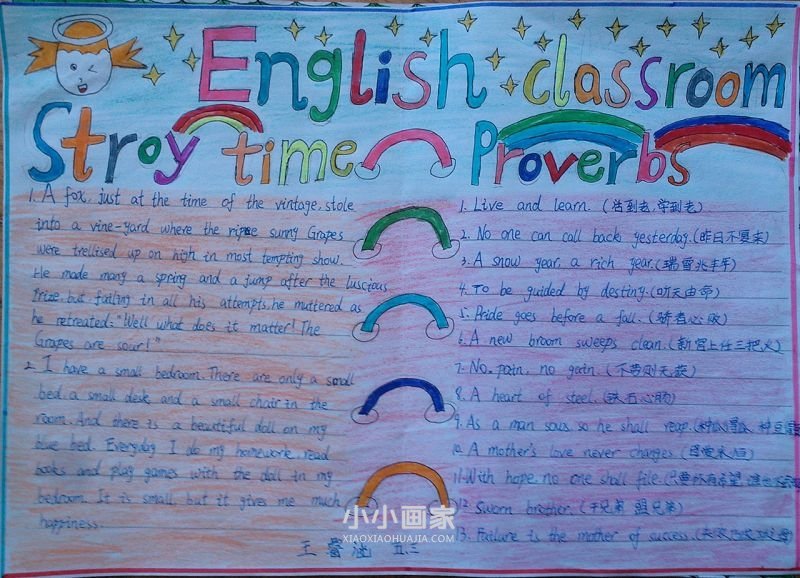 English classroom
Stroy time
1. A fox, just at the time of the vintage, stole
into a vine-yard where the ripe sunny Grapes
were trellised up on high in most tempting show.
He made many a spring and a jump after the luscious
Prize. but failing in all his attempts, he muttered as
he retreated. "Well what does it matter! The
Grapes are sour!"
2. I have a small bedroom. There are only a small
bed a small desk and a small chair in the
room. And there is a beautiful doll on my
blue bed. Everyday I do my homework, read
books and play games with the doll in my
bedroom. It is small, but it gives me much
happiness.
Proverbs
1. Live and learn. (活到老,学到老)
2. No one can call back yesterday. (昨日不复来)
3. A snow year, a rich year. (瑞雪兆丰年)
4. To be guided by destiny. (听天由命)
5. Pride goes before a fall. (骄者必败)
6. A new broom sweeps clean. (新官上任三把火)
7. No pain, no gain. (不劳则无获)
8. A heart of steel. (铁石心肠)
9. As a man sows, so he shall reap. (种瓜得瓜 种豆得
10. A mother's love never changes.
11. With hope, no one shall file.
12. Sworn brother. (干兄弟 盟兄弟)
13. Failure is the mother of success. (失败乃成功之母)
王 涵 五.三
小小画家
XIAOXIAOHUAJIA.COM